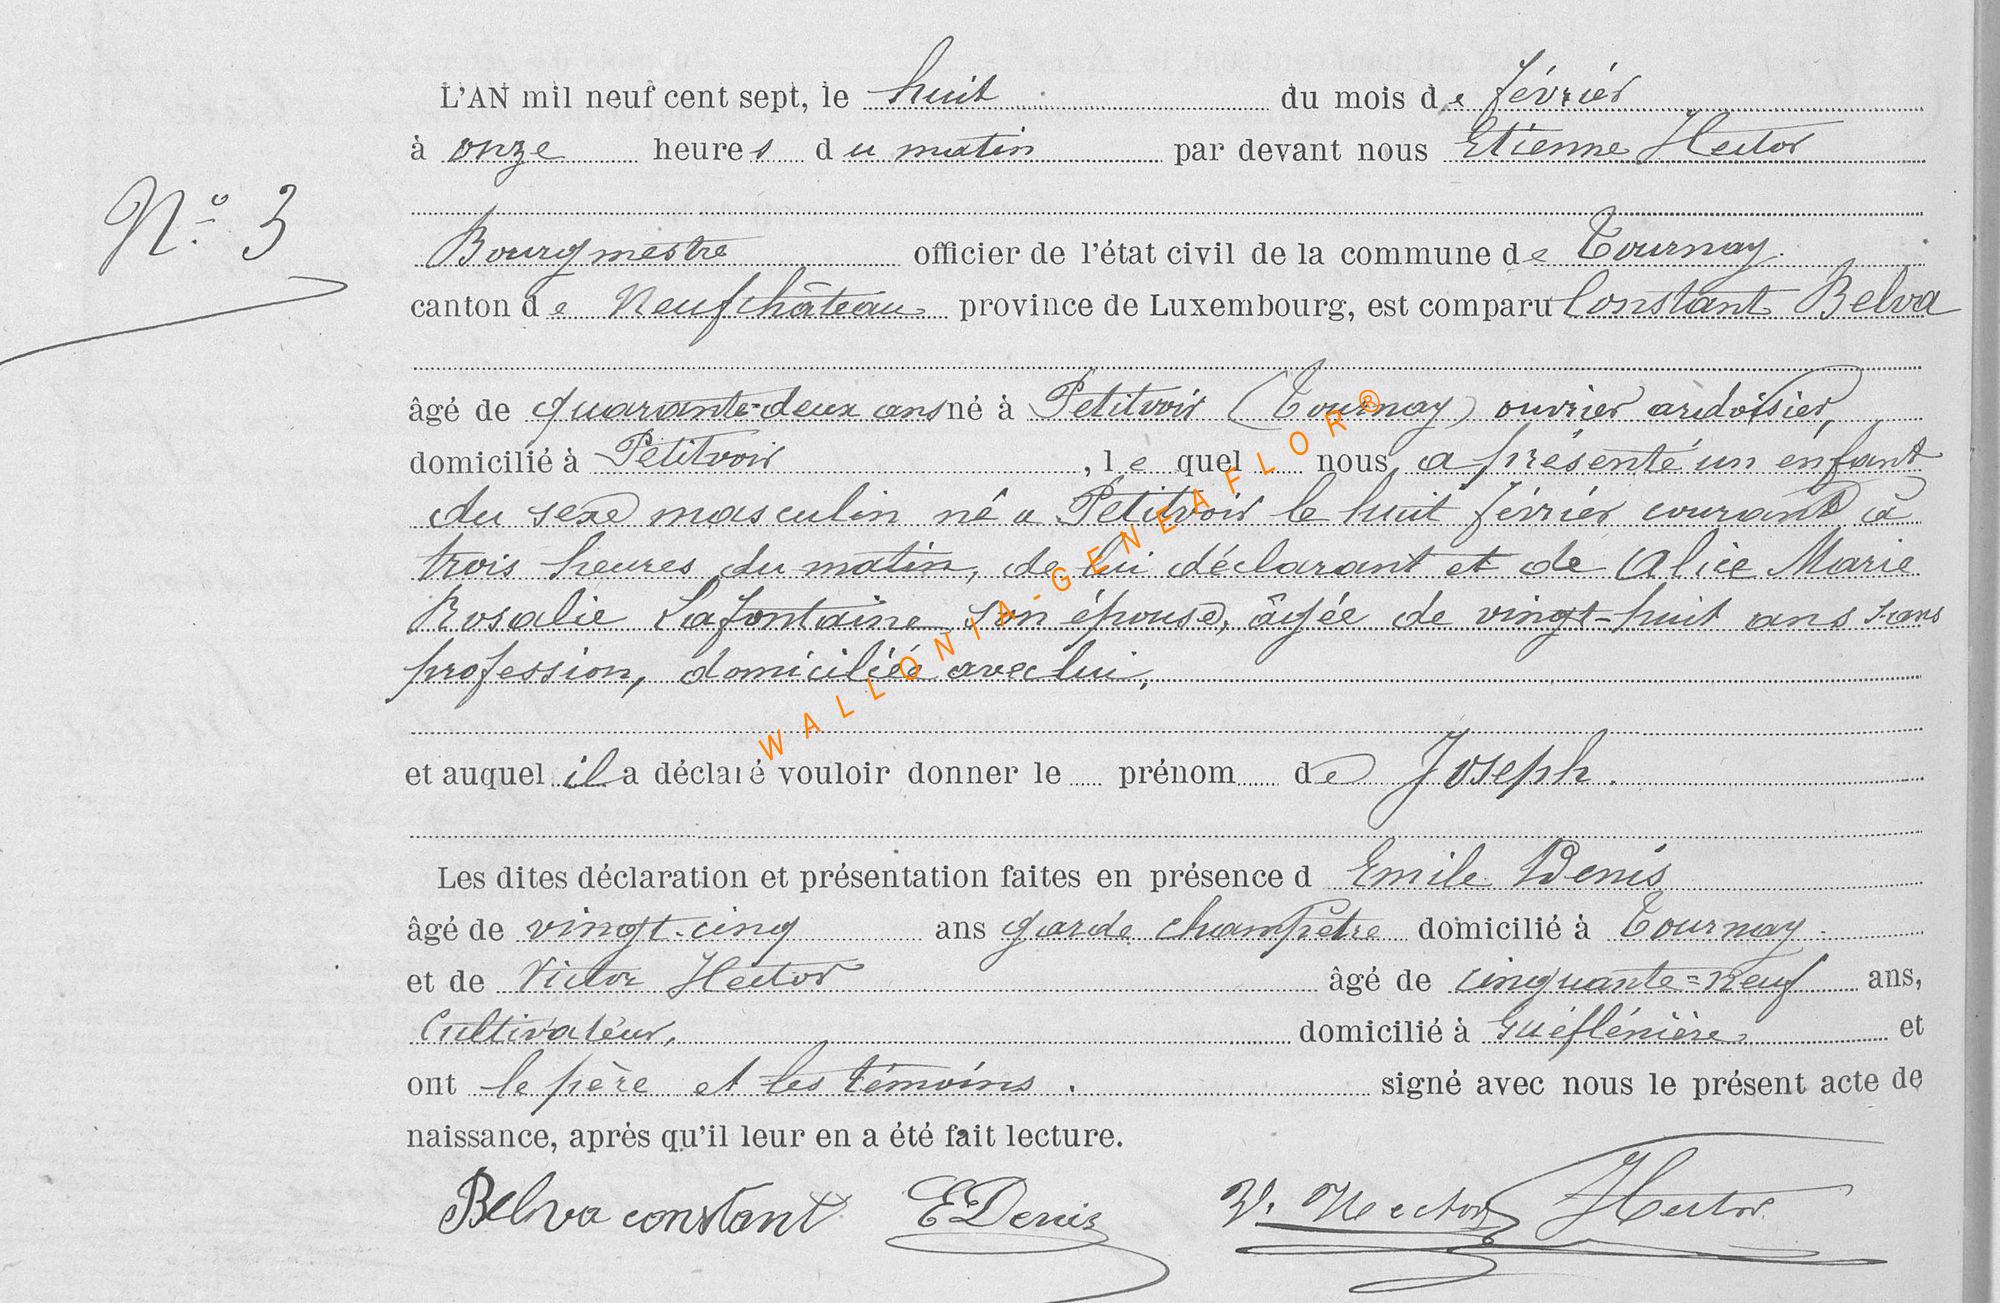 L'AN mil neuf cent sept, le huit du mois de février
à onze heures du matin par devant nous Etienne Hector
N° 3
Bourgmestre officier de l'état civil de la commune de Tournay.
canton de Neufchâteau province de Luxembourg, est comparu Constant Belva
âgé de quarante-deux ans né à Petitvoir (Tournay) ouvrier ardoisier,
domicilié à Petitvoir, lequel nous a présenté un enfant
du sexe masculin né a Petitvoir le huit février courant à
trois heures du matin, de lui déclarant et de Alice Marie
Rosalie Lafontaine son épouse, âgée de vingt-huit ans sans
profession, domiciliée avec lui,
et auquel il a déclaré vouloir donner le prénom de Joseph.
Les dites déclaration et présentation faites en présence d Emile Denis
âgé de vingt-cinq ans garde champêtre domicilié à Tournay.
et de Victor Hector âgé de cinquante-neuf ans,
Cultivateur, domicilié à Gueflénière et
ont le père et les témoins. signé avec nous le présent acte de
naissance, après qu'il leur en a été fait lecture.
Belva constant EDenis V. Hector Hector
WALLONIA-GENEAFLOR®